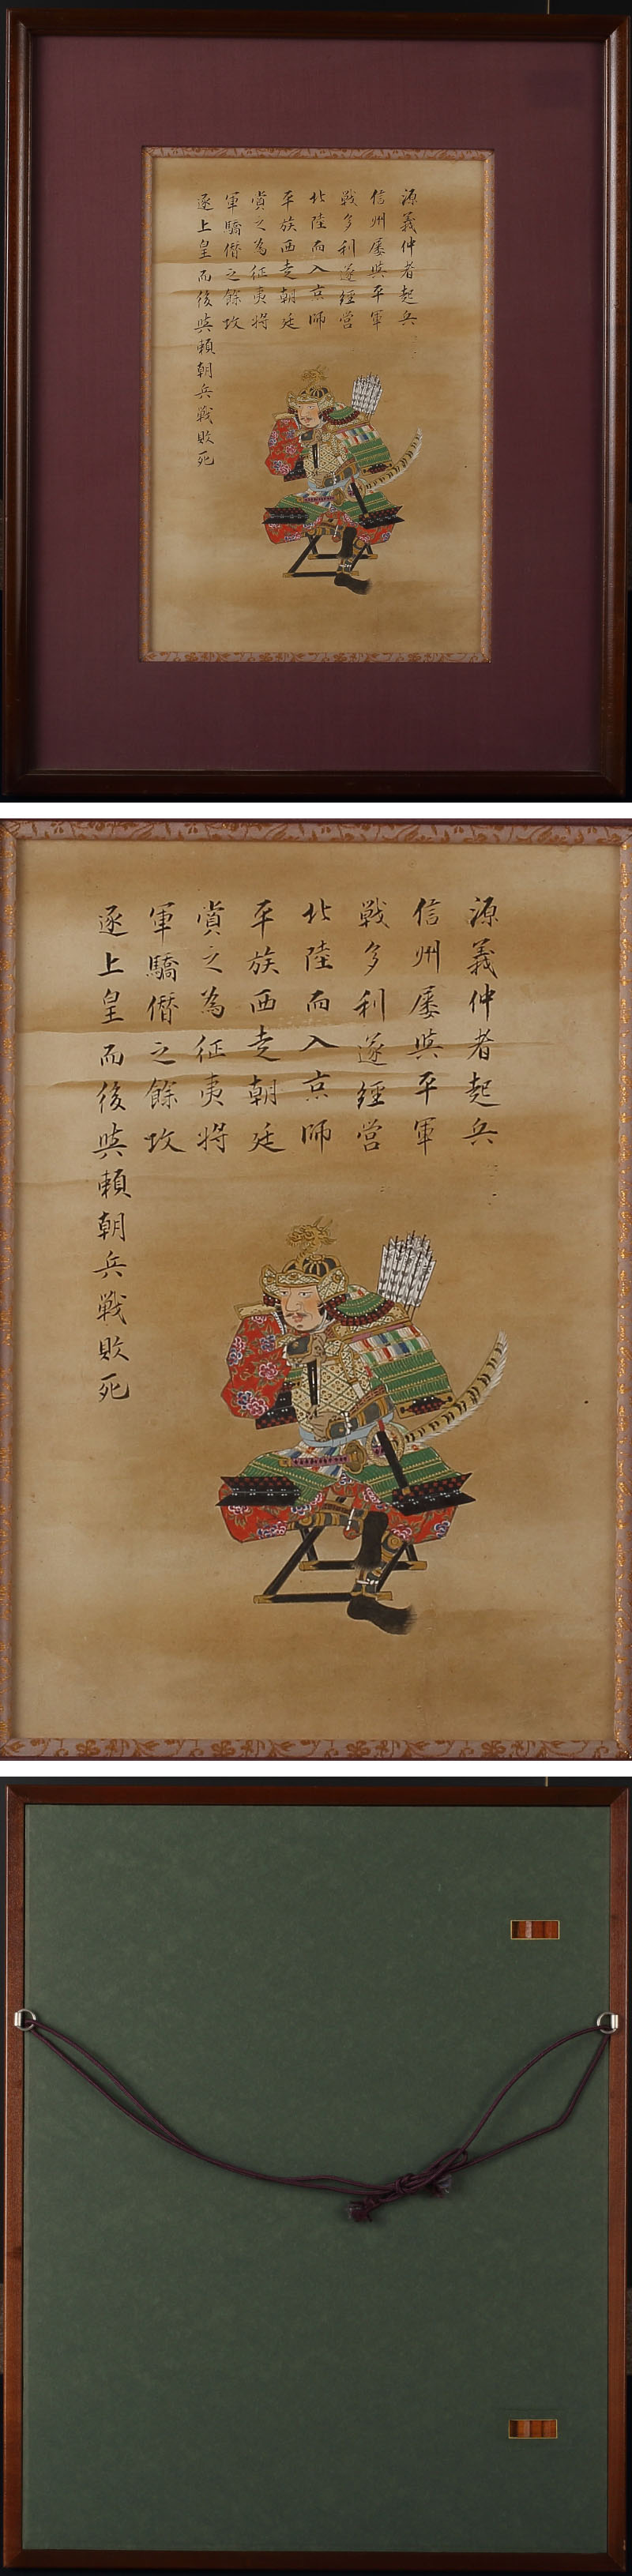 源義仲者起兵
信州屡與平軍
戦多利遂經営
北陸而入京師
平族西走朝廷
賞之為征夷将
軍驕僭之餘攻
逐上皇而後與頼朝兵戦敗死
源義仲者起兵
信州屡與平軍
戦多利遂經営
北陸而入京師
平族西走朝廷
賞之為征夷将
軍驕僭之餘攻
逐上皇而後與頼朝兵戦敗死